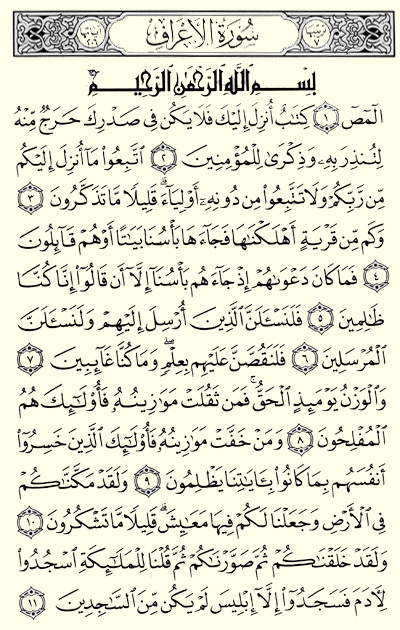 سُورَةُ الأَعْرَافِ
بِسْمِ اللَّهِ الرَّحْمَٰنِ الرَّحِيمِ
الٓمٓصٓ ١ كِتَٰبٌ أُنزِلَ إِلَيْكَ فَلَا يَكُن فِى صَدْرِكَ حَرَجٌ مِّنْهُ
لِتُنذِرَ بِهِۦ وَذِكْرَىٰ لِلْمُؤْمِنِينَ ٢ ٱتَّبِعُوا۟ مَآ أُنزِلَ إِلَيْكُم
مِّن رَّبِّكُمْ وَلَا تَتَّبِعُوا۟ مِن دُونِهِۦٓ أَوْلِيَآءَ ۗ قَلِيلًا مَّا تَذَكَّرُونَ ٣
وَكَم مِّن قَرْيَةٍ أَهْلَكْنَٰهَا فَجَآءَهَا بَأْسُنَا بَيَٰتًا أَوْ هُمْ قَآئِلُونَ
٤ فَمَا كَانَ دَعْوَىٰهُمْ إِذْ جَآءَهُم بَأْسُنَآ إِلَّآ أَن قَالُوٓا۟ إِنَّا كُنَّا
ظَٰلِمِينَ ٥ فَلَنَسْـَٔلَنَّ ٱلَّذِينَ أُرْسِلَ إِلَيْهِمْ وَلَنَسْـَٔلَنَّ
ٱلْمُرْسَلِينَ ٦ فَلَنَقُصَّنَّ عَلَيْهِم بِعِلْمٍ ۖ وَمَا كُنَّا غَآئِبِينَ ٧
وَٱلْوَزْنُ يَوْمَئِذٍ ٱلْحَقُّ ۚ فَمَن ثَقُلَتْ مَوَٰزِينُهُۥ فَأُو۟لَٰٓئِكَ هُمُ
ٱلْمُفْلِحُونَ ٨ وَمَنْ خَفَّتْ مَوَٰزِينُهُۥ فَأُو۟لَٰٓئِكَ ٱلَّذِينَ خَسِرُوٓا۟
أَنفُسَهُم بِمَا كَانُوا۟ بِـَٔايَٰتِنَا يَظْلِمُونَ ٩ وَلَقَدْ مَكَّنَّٰكُمْ
فِى ٱلْأَرْضِ وَجَعَلْنَا لَكُمْ فِيهَا مَعَٰيِشَ ۗ قَلِيلًا مَّا تَشْكُرُونَ ١٠
وَلَقَدْ خَلَقْنَٰكُمْ ثُمَّ صَوَّرْنَٰكُمْ ثُمَّ قُلْنَا لِلْمَلَٰٓئِكَةِ ٱسْجُدُوا۟
لِـَٔادَمَ فَسَجَدُوٓا۟ إِلَّآ إِبْلِيسَ لَمْ يَكُن مِّنَ ٱلسَّٰجِدِينَ ١١